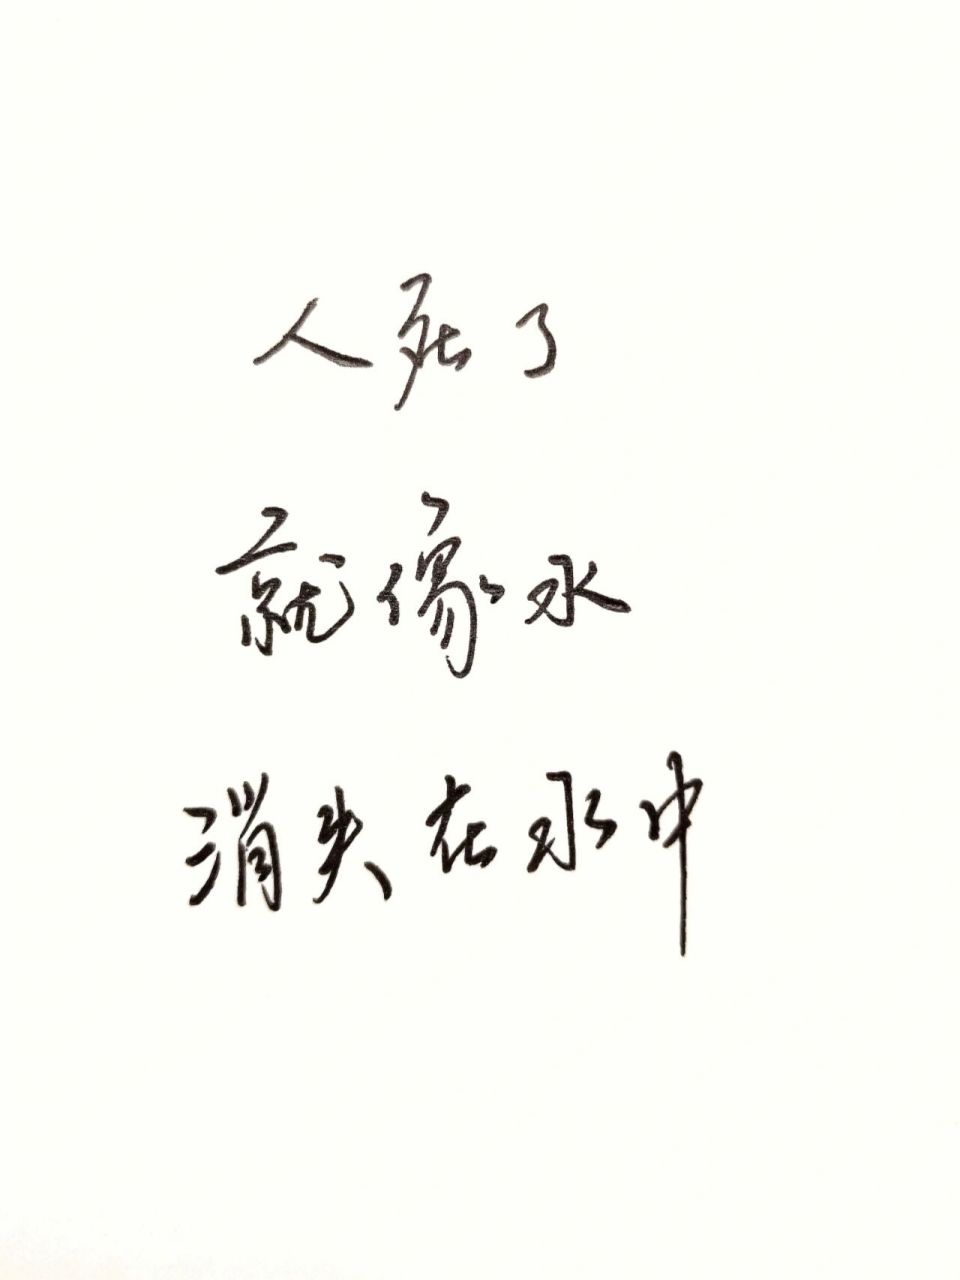 人死了
就像水
消失在水中